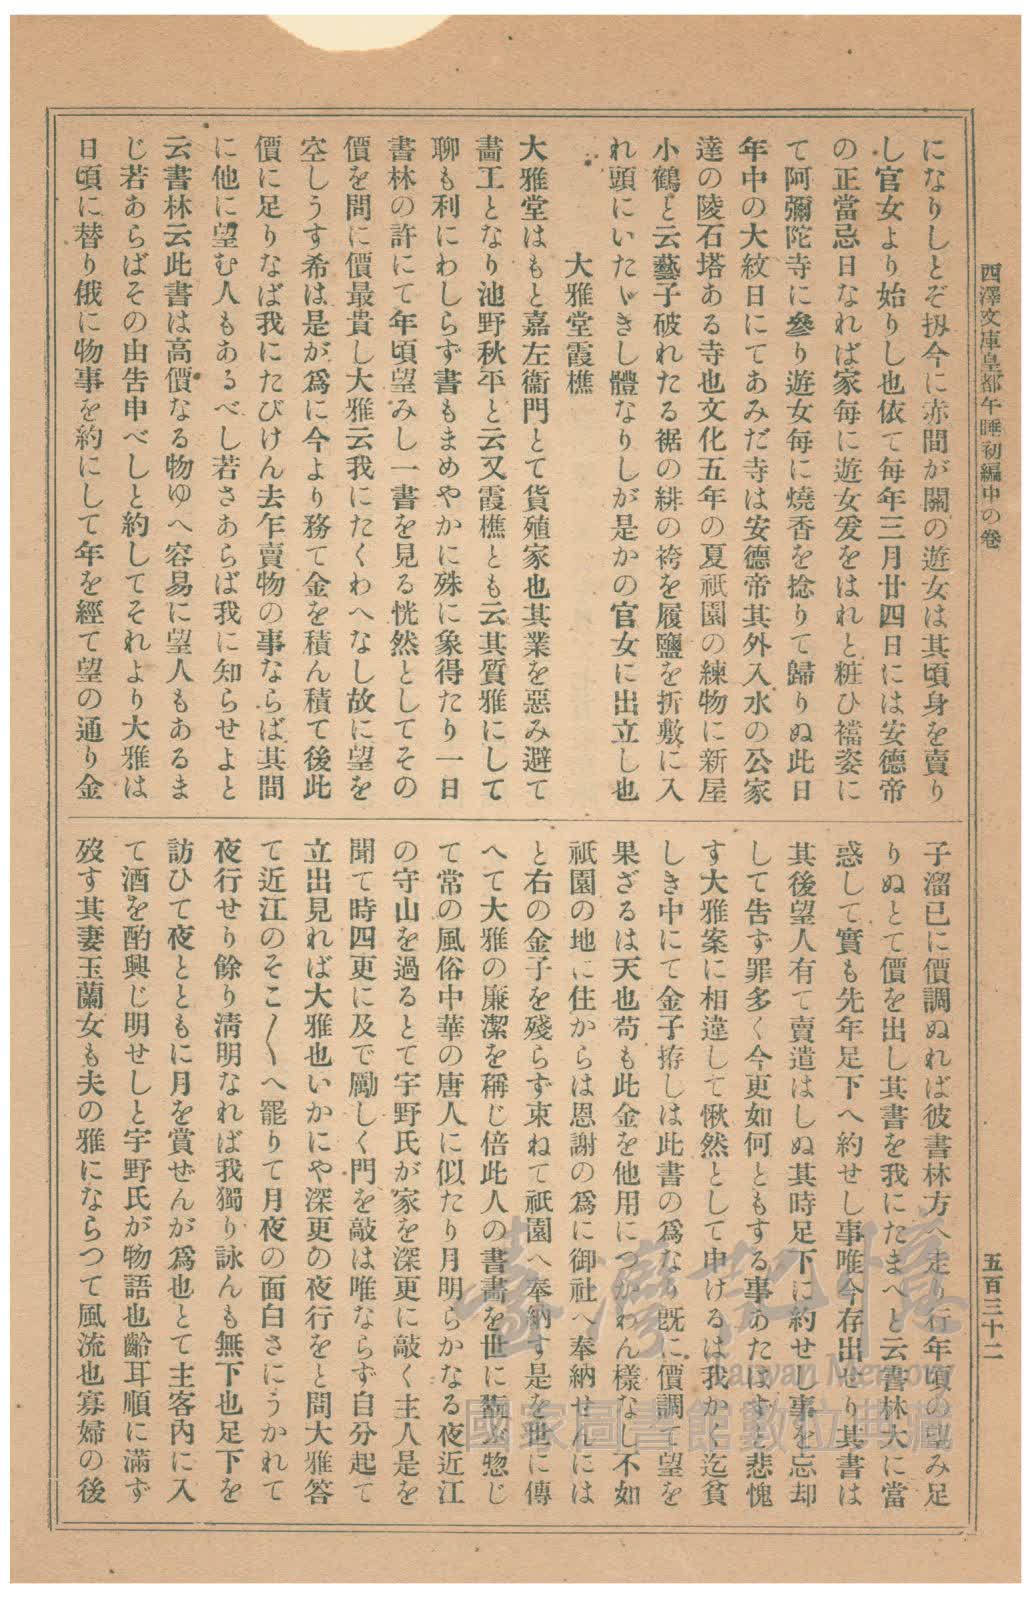 西澤文庫皇都午睡初編中の卷
五百三十二
になりしとぞ扨今に赤間が關の遊女は其頃身を賣り
し官女より始りし也依て每年三月廿四日には安德帝
の正當忌日なれば家每に遊女爰をはれと粧ひ襠姿に
て阿彌陀寺に參り遊女每に燒香を捻りて歸りぬ此日
年中の大紋日にてあみだ寺は安德帝其外入水の公家
達の陵石塔ある寺也文化五年の夏祇園の練物に新屋
小鶴と云藝子破れたる裾の緋の袴を履鹽を折敷に入
れ頭にいたゞきし體なりしが是かの官女に出立し也
大雅堂霞樵
大雅堂はもと嘉左衞門とて貨殖家也其業を惡み避て
畵工となり池野秋平と云又霞樵とも云其質雅にして
聊も利にわしらず書もまめやかに殊に象得たり一日
書林の許にて年頃望みし一書を見る恍然としてその
價を問に價最貴し大雅云我にたくわへなし故に望を
空しうす希は是が爲に今より務て金を積ん積て後此
價に足りなば我にたびけん去乍賣物の事ならば其間
に他に望む人もあるべし若さあらば我に知らせよと
云書林云此書は高價なる物ゆへ容易に望人もあるま
じ若あらばその由告申べしと約してそれより大雅は
日頃に替り俄に物事を約にして年を經て望の通り金
子溜已に價調ぬれば彼書林方へ走り行年頃の望み足
りぬとて價を出し其書を我にたまへと云書林大に當
惑して實も先年足下へ約せし事唯今存出せり其書は
其後望人有て賣遣はしぬ其時足下に約せし事を忘却
して告ず罪多く今更如何ともする事あたはずと悲愧
す大雅案に相違して愀然として申けるは我かく迄貧
しき中にて金子拵しは此書の爲なり既に價調て望を
果ざるは天也苟も此金を他用につかわん樣なし不如
祇園の地に住からは恩謝の爲に御社へ奉納せんには
と右の金子を殘らず束ねて祇園へ奉納す是を世に傳
へて大雅の廉潔を稱じ倍此人の書畵を世に翫ぶ惣じ
て常の風俗中華の唐人に似たり月明らかなる夜近江
の守山を過るとて宇野氏が家を深更に敲く主人是を
聞て時四更に及で勵しく門を敲は唯ならず自分起て
立出見れば大雅也いかにや深更の夜行をと問大雅答
て近江のそこ〱へ罷りて月夜の面白さにうかれて
夜行せり餘り淸明なれば我獨り詠んも無下也足下を
訪ひて夜とともに月を賞せんが爲也とて主客內に入
て酒を酌興じ明せしと宇野氏が物語也齡耳順に滿ず
歿す其妻玉蘭女も夫の雅にならつて風流也寡婦の後
臺灣記憶
Taiwan Memory
國家圖書館數位典藏